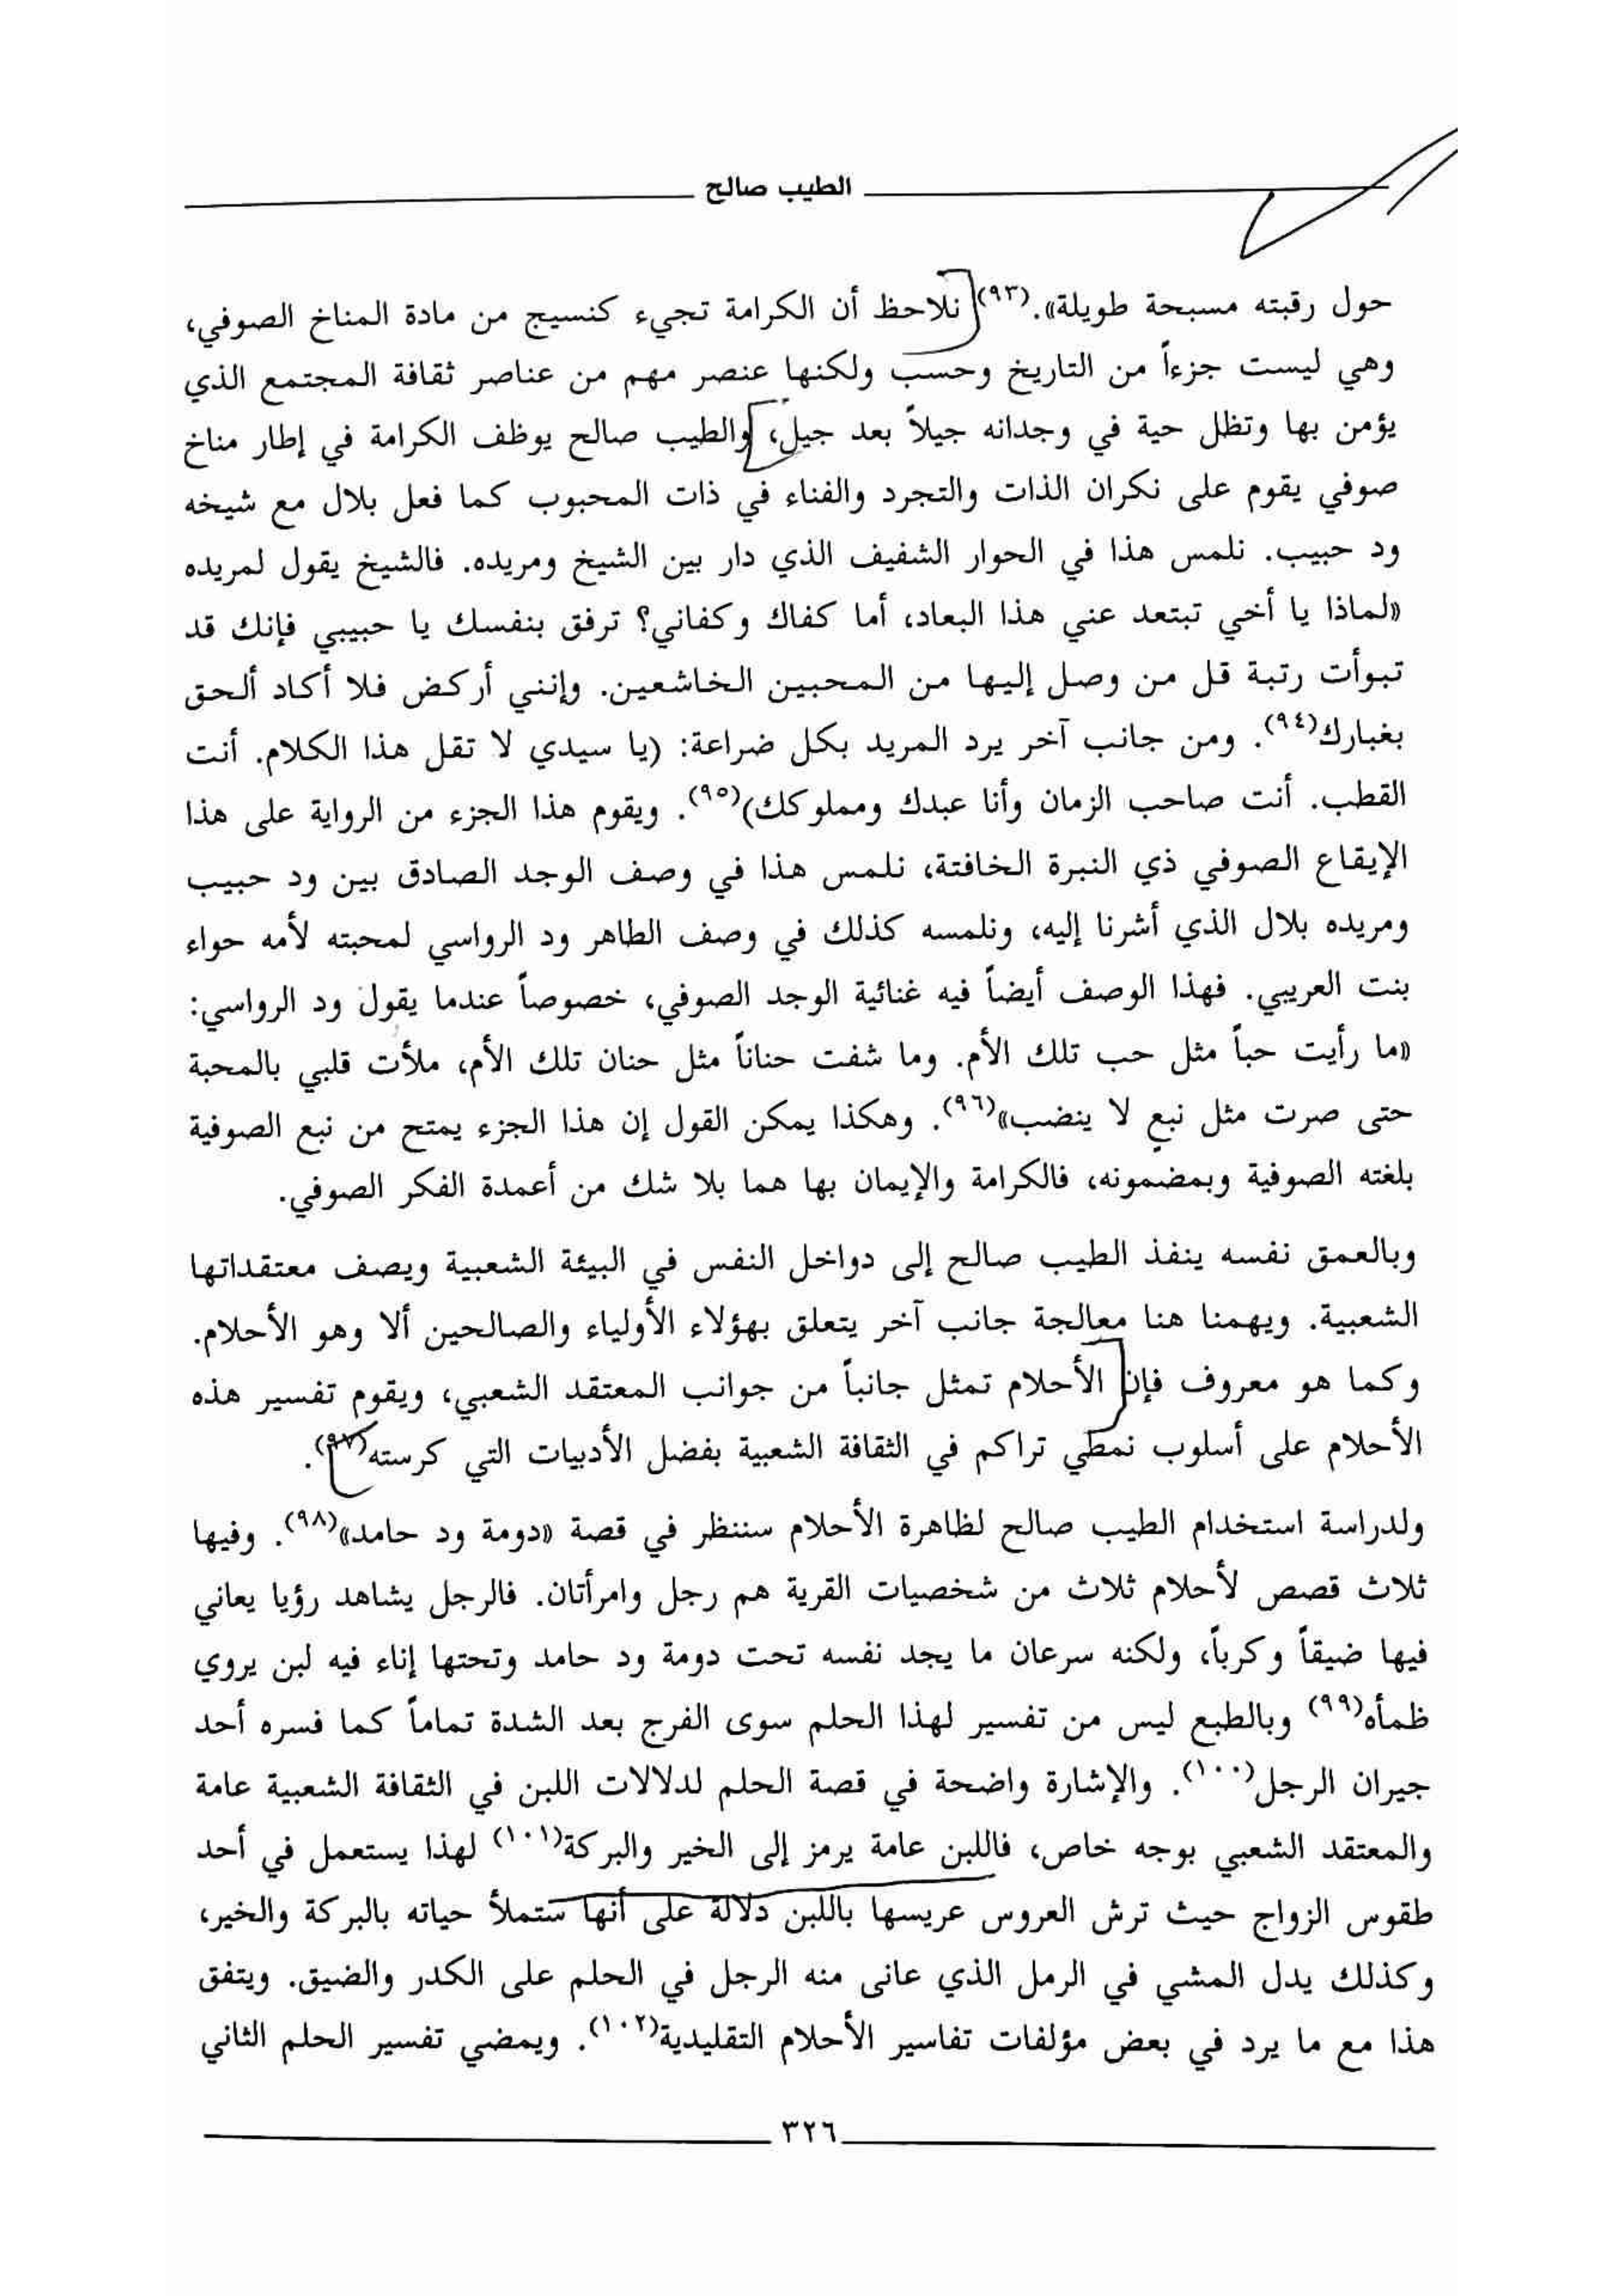 الطيب صالح
حول رقبته مسبحة طويلة».(٩٣) نلاحظ أن الكرامة تجيء كنسيج من مادة المناخ الصوفي،
وهي ليست جزءاً من التاريخ وحسب ولكنها عنصر مهم من عناصر ثقافة المجتمع الذي
يؤمن بها وتظل حية في وجدانه جيلاً بعد جيل، والطيب صالح يوظف الكرامة في إطار مناخ
صوفي يقوم على نكران الذات والتجرد والفناء في ذات المحبوب كما فعل بلال مع شيخه
ود حبيب. نلمس هذا في الحوار الشفيف الذي دار بين الشيخ ومريده. فالشيخ يقول لمريده
«لماذا يا أخي تبتعد عني هذا البعاد، أما كفاك وكفاني؟ ترفق بنفسك يا حبيبي فإنك قد
تبوأت رتبة قل من وصل إليها من المحبين الخاشعين. وإنني أركض فلا أكاد ألحق
بغبارك(٩٤). ومن جانب آخر يرد المريد بكل ضراعة: (يا سيدي لا تقل هذا الكلام. أنت
القطب. أنت صاحب الزمان وأنا عبدك ومملوكك)(٩٥). ويقوم هذا الجزء من الرواية على هذا
الإيقاع الصوفي ذي النبرة الخافتة، نلمس هذا في وصف الوجد الصادق بين ود حبيب
ومريده بلال الذي أشرنا إليه، ونلمسه كذلك في وصف الطاهر ود الرواسي لمحبته لأمه حواء
بنت العريبي. فهذا الوصف أيضاً فيه غنائية الوجد الصوفي، خصوصاً عندما يقول ود الرواسي:
«ما رأيت حباً مثل حب تلك الأم. وما شفت حناناً مثل حنان تلك الأم، ملأت قلبي بالمحبة
حتى صرت مثل نبع لا ينضب»(٩٦). وهكذا يمكن القول إن هذا الجزء يمتح من نبع الصوفية
بلغته الصوفية وبمضمونه، فالكرامة والإيمان بها هما بلا شك من أعمدة الفكر الصوفي.
وبالعمق نفسه ينفذ الطيب صالح إلى دواخل النفس في البيئة الشعبية ويصف معتقداتها
الشعبية. ويهمنا هنا معالجة جانب آخر يتعلق بهؤلاء الأولياء والصالحين ألا وهو الأحلام.
وكما هو معروف فإن الأحلام تمثل جانباً من جوانب المعتقد الشعبي، ويقوم تفسير هذه
الأحلام على أسلوب نمطي تراكم في الثقافة الشعبية بفضل الأدبيات التي كرسته(٩٧).
ولدراسة استخدام الطيب صالح لظاهرة الأحلام سننظر في قصة «دومة ود حامد»(٩٨). وفيها
ثلاث قصص لأحلام ثلاث من شخصيات القرية هم رجل وامرأتان. فالرجل يشاهد رؤيا يعاني
فيها ضيقاً وكرباً، ولكنه سرعان ما يجد نفسه تحت دومة ود حامد وتحتها إناء فيه لبن يروي
ظمأه(٩٩) وبالطبع ليس من تفسير لهذا الحلم سوى الفرج بعد الشدة تماماً كما فسره أحد
جيران الرجل(١٠٠). والإشارة واضحة في قصة الحلم لدلالات اللبن في الثقافة الشعبية عامة
والمعتقد الشعبي بوجه خاص، فاللبن عامة يرمز إلى الخير والبركة(١٠١) لهذا يستعمل في أحد
طقوس الزواج حيث ترش العروس عريسها باللبن دلالة على أنها ستملأ حياته بالبركة والخير،
وكذلك يدل المشي في الرمل الذي عانى منه الرجل في الحلم على الكدر والضيق. ويتفق
هذا مع ما يرد في بعض مؤلفات تفاسير الأحلام التقليدية(١٠٢). ويمضي تفسير الحلم الثاني
٣٢٦